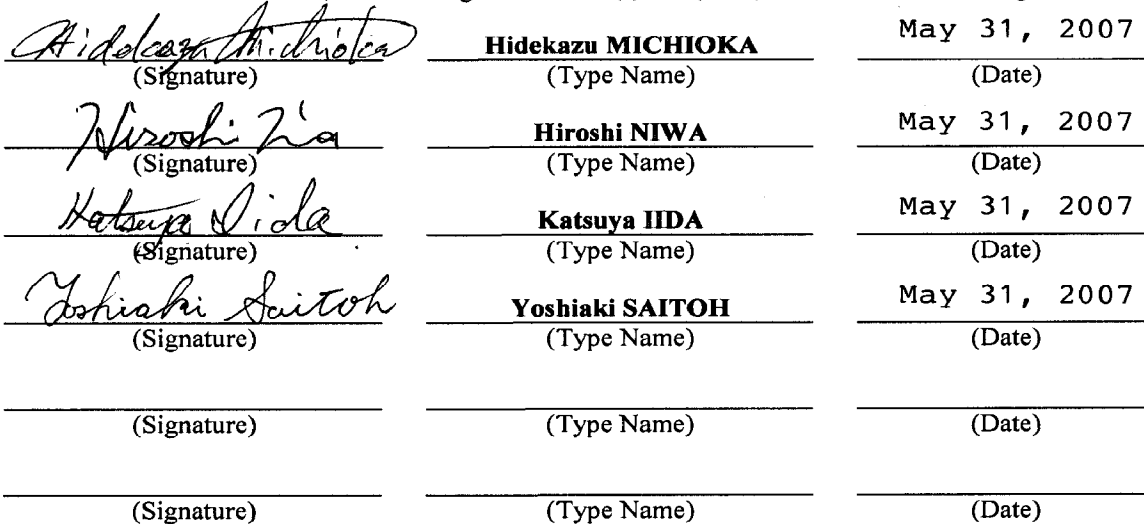 Hidekazu Michioka Hidekazu MICHIOKA May 31, 2007
(Signature) (Type Name) (Date)
Hiroshi Niwa Hiroshi NIWA May 31, 2007
(Signature) (Type Name) (Date)
Katsuya Iida Katsuya IIDA May 31, 2007
(Signature) (Type Name) (Date)
Yoshiaki Saitoh Yoshiaki SAITOH May 31, 2007
(Signature) (Type Name) (Date)
(Signature) (Type Name) (Date)
(Signature) (Type Name) (Date)